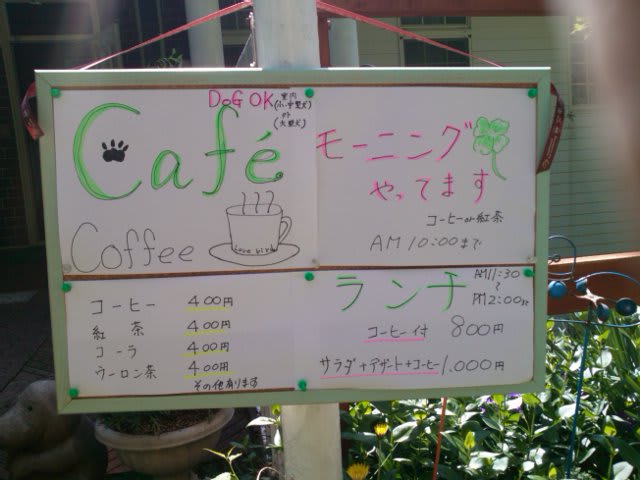 DoG OK 室内
(小・中型犬)
外
(大型犬)
Café
Coffee
Love bird
モーニング
やってます
コーヒーor紅茶
AM 10:00まで
コーヒー 400円
紅茶 400円
コーラ 400円
ウーロン茶 400円
その他有ります
ランチ AM11:30
〜
PM2:00
コーヒー付 800円
サラダ+デザート+コーヒー 1.000円